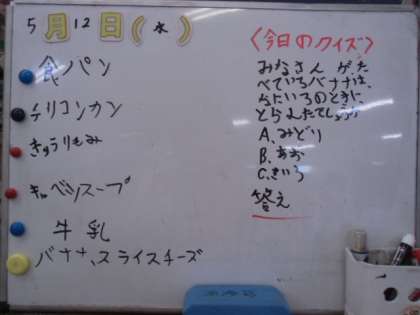 5月12日(水)
食パン
チリコンカン
きゅうりもみ
キャベツスープ
牛乳
バナナ、スライスチーズ
〈今日のクイズ〉
みなさん がた
べているバナナは、
なにいろのときに
とられたでしょうか
A、みどり
B、あお
C、きいろ
答え